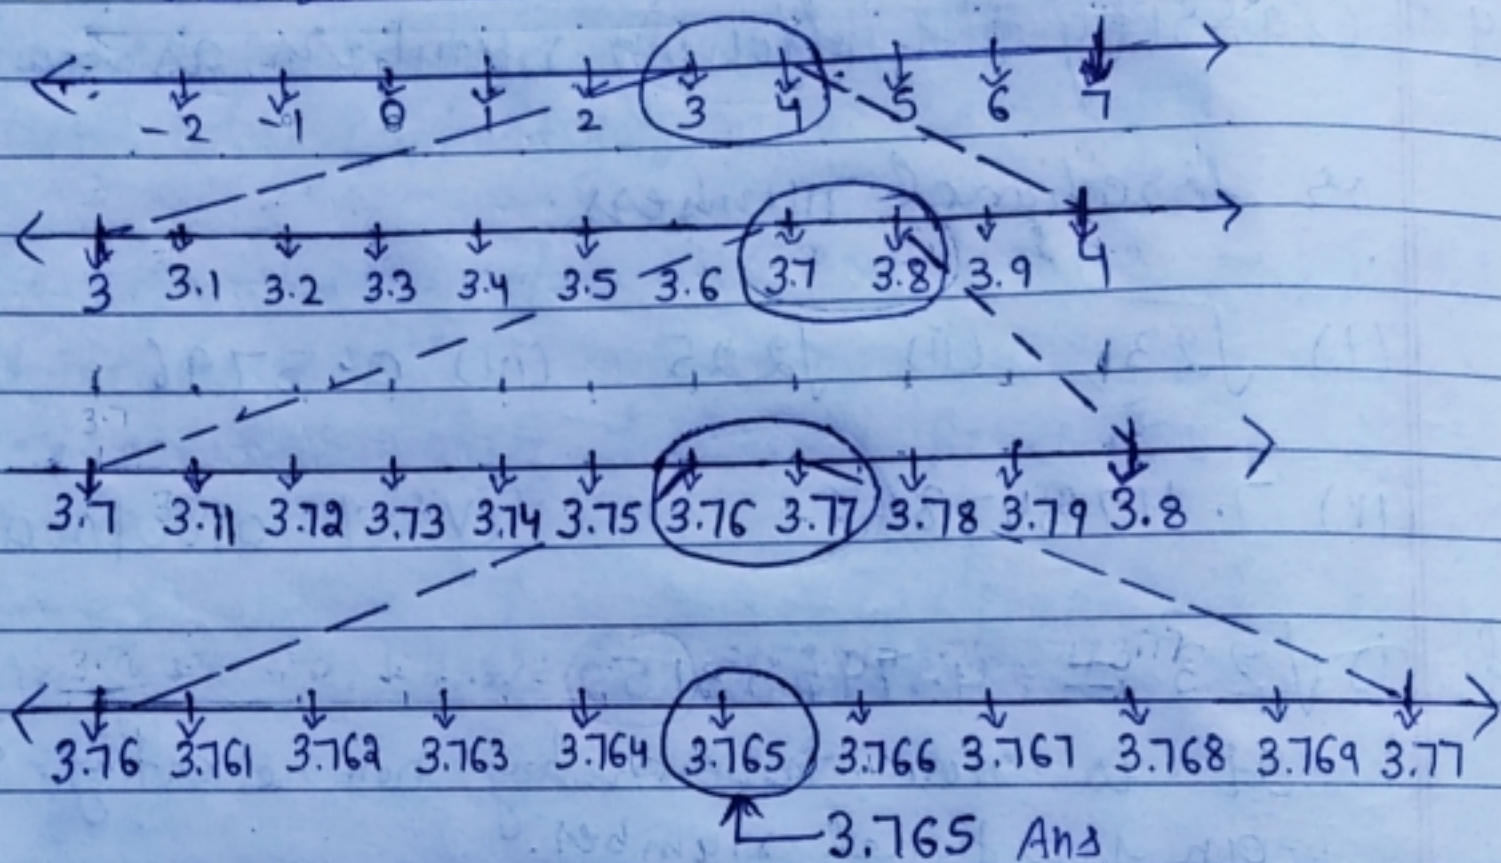 -2 -1 0 1 2 3 4 5 6 7
3 3.1 3.2 3.3 3.4 3.5 3.6 3.7 3.8 3.9 4
3.7
3.7 3.71 3.72 3.73 3.74 3.75 3.76 3.77 3.78 3.79 3.8
3.76 3.761 3.762 3.763 3.764 3.765 3.766 3.767 3.768 3.769 3.77
3.765 Ans